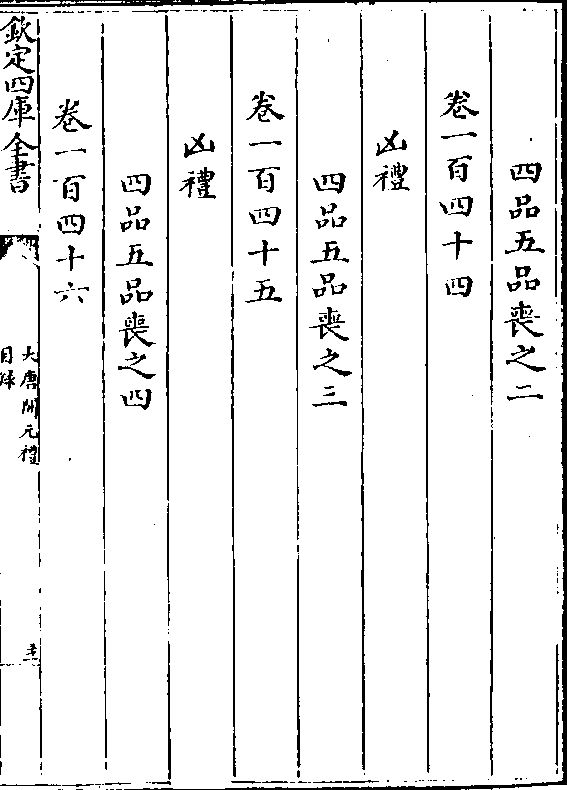 四品五品喪之二
卷一百四十四
凶禮
四品五品喪之三
卷一百四十五
凶禮
四品五品喪之四
卷一百四十六
欽定四庫全書
大唐開元禮
目録